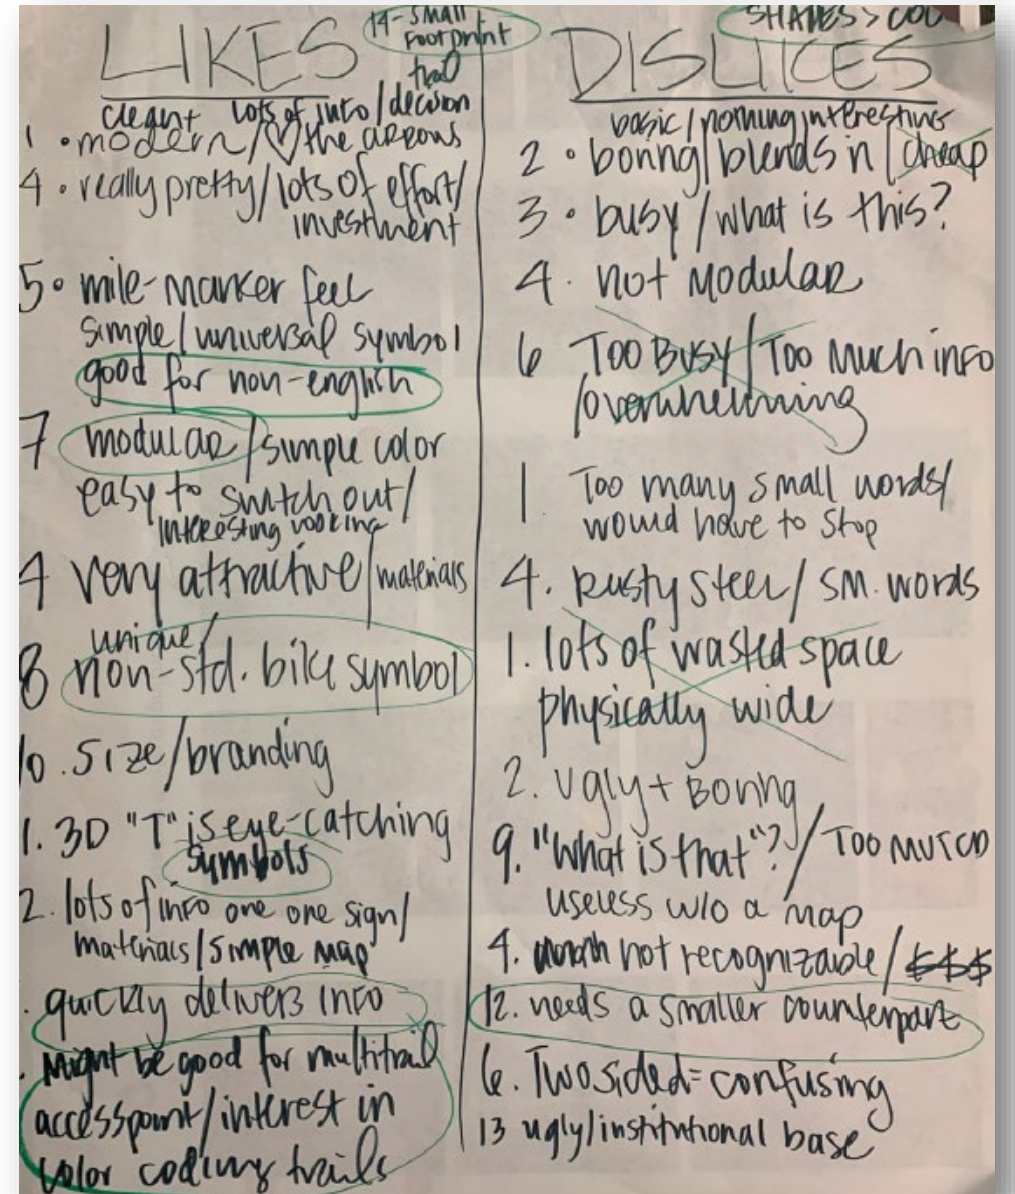 14- small
footprint
LIKES
trail
clean + lots of info/decision
1 • modern/♡ the arrows
4 • really pretty/lots of effort/
investment
5 • mile-marker feel
simple/universal symbol
good for non-english
7 modular/simple color
easy to switch out/
interesting looking
4 very attractive/materials
unique/
8 non-std. bike symbol
10. size/branding
1. 3D "T" is eye-catching
symbols
2. lots of info one one sign/
materials/simple map
. quickly delivers info
. might be good for multitrail
accesspoint/interest in
color coding trails
SHAPES > COL
DISLIKES
basic/nothing interesting
2 • boring/blends in/cheap
3 • busy/what is this?
4. not modular
6 Too Busy/Too much info
/overwhelming
1 Too many small words/
would have to stop
4. Rusty steel/sm. words
1. lots of wasted space
physically wide
2. ugly + Boring
9. "What is that"?/Too MUTCD
useless w/o a map
4. not recognizable/$$$
12. needs a smaller counterpart
6. Two sided = confusing
13 ugly/institutional base